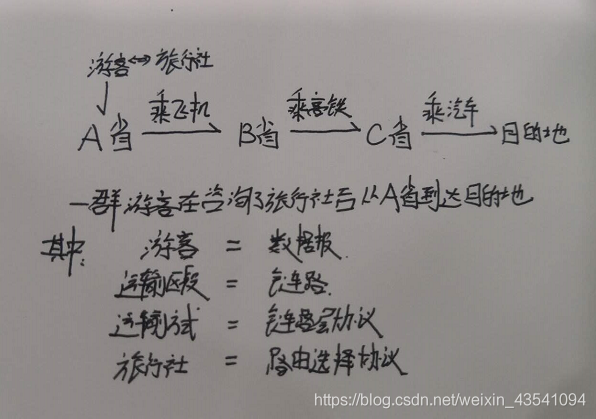 游客⇔旅行社
乘飞机 乘高铁 乘汽车
A省 → B省 → C省 → 目的地
一群游客在咨询了旅行社后从A省到达目的地
其中: 游客 = 数据报.
运输区段 = 链路.
运输方式 = 链路层协议
旅行社 = 路由选择协议
https://blog.csdn.net/weixin_43541094